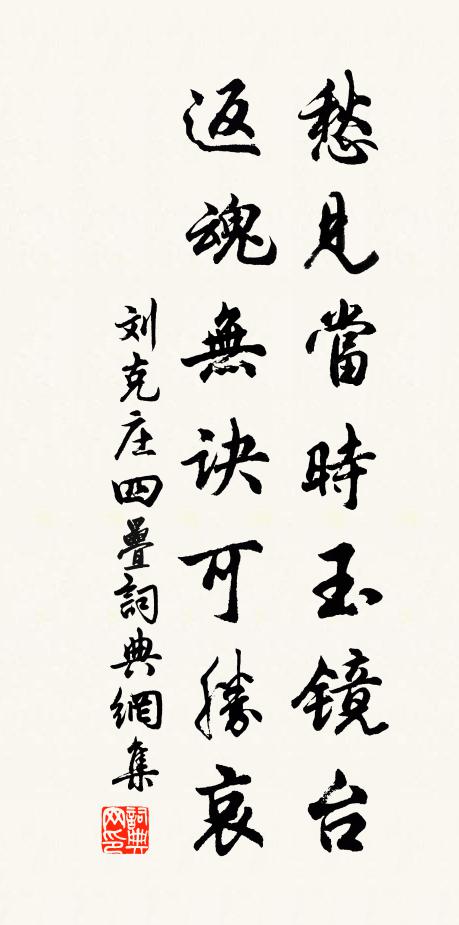 愁見當時玉镜台
返魂無訣可勝哀
刘克庄四疊詞典網集
詞典网印